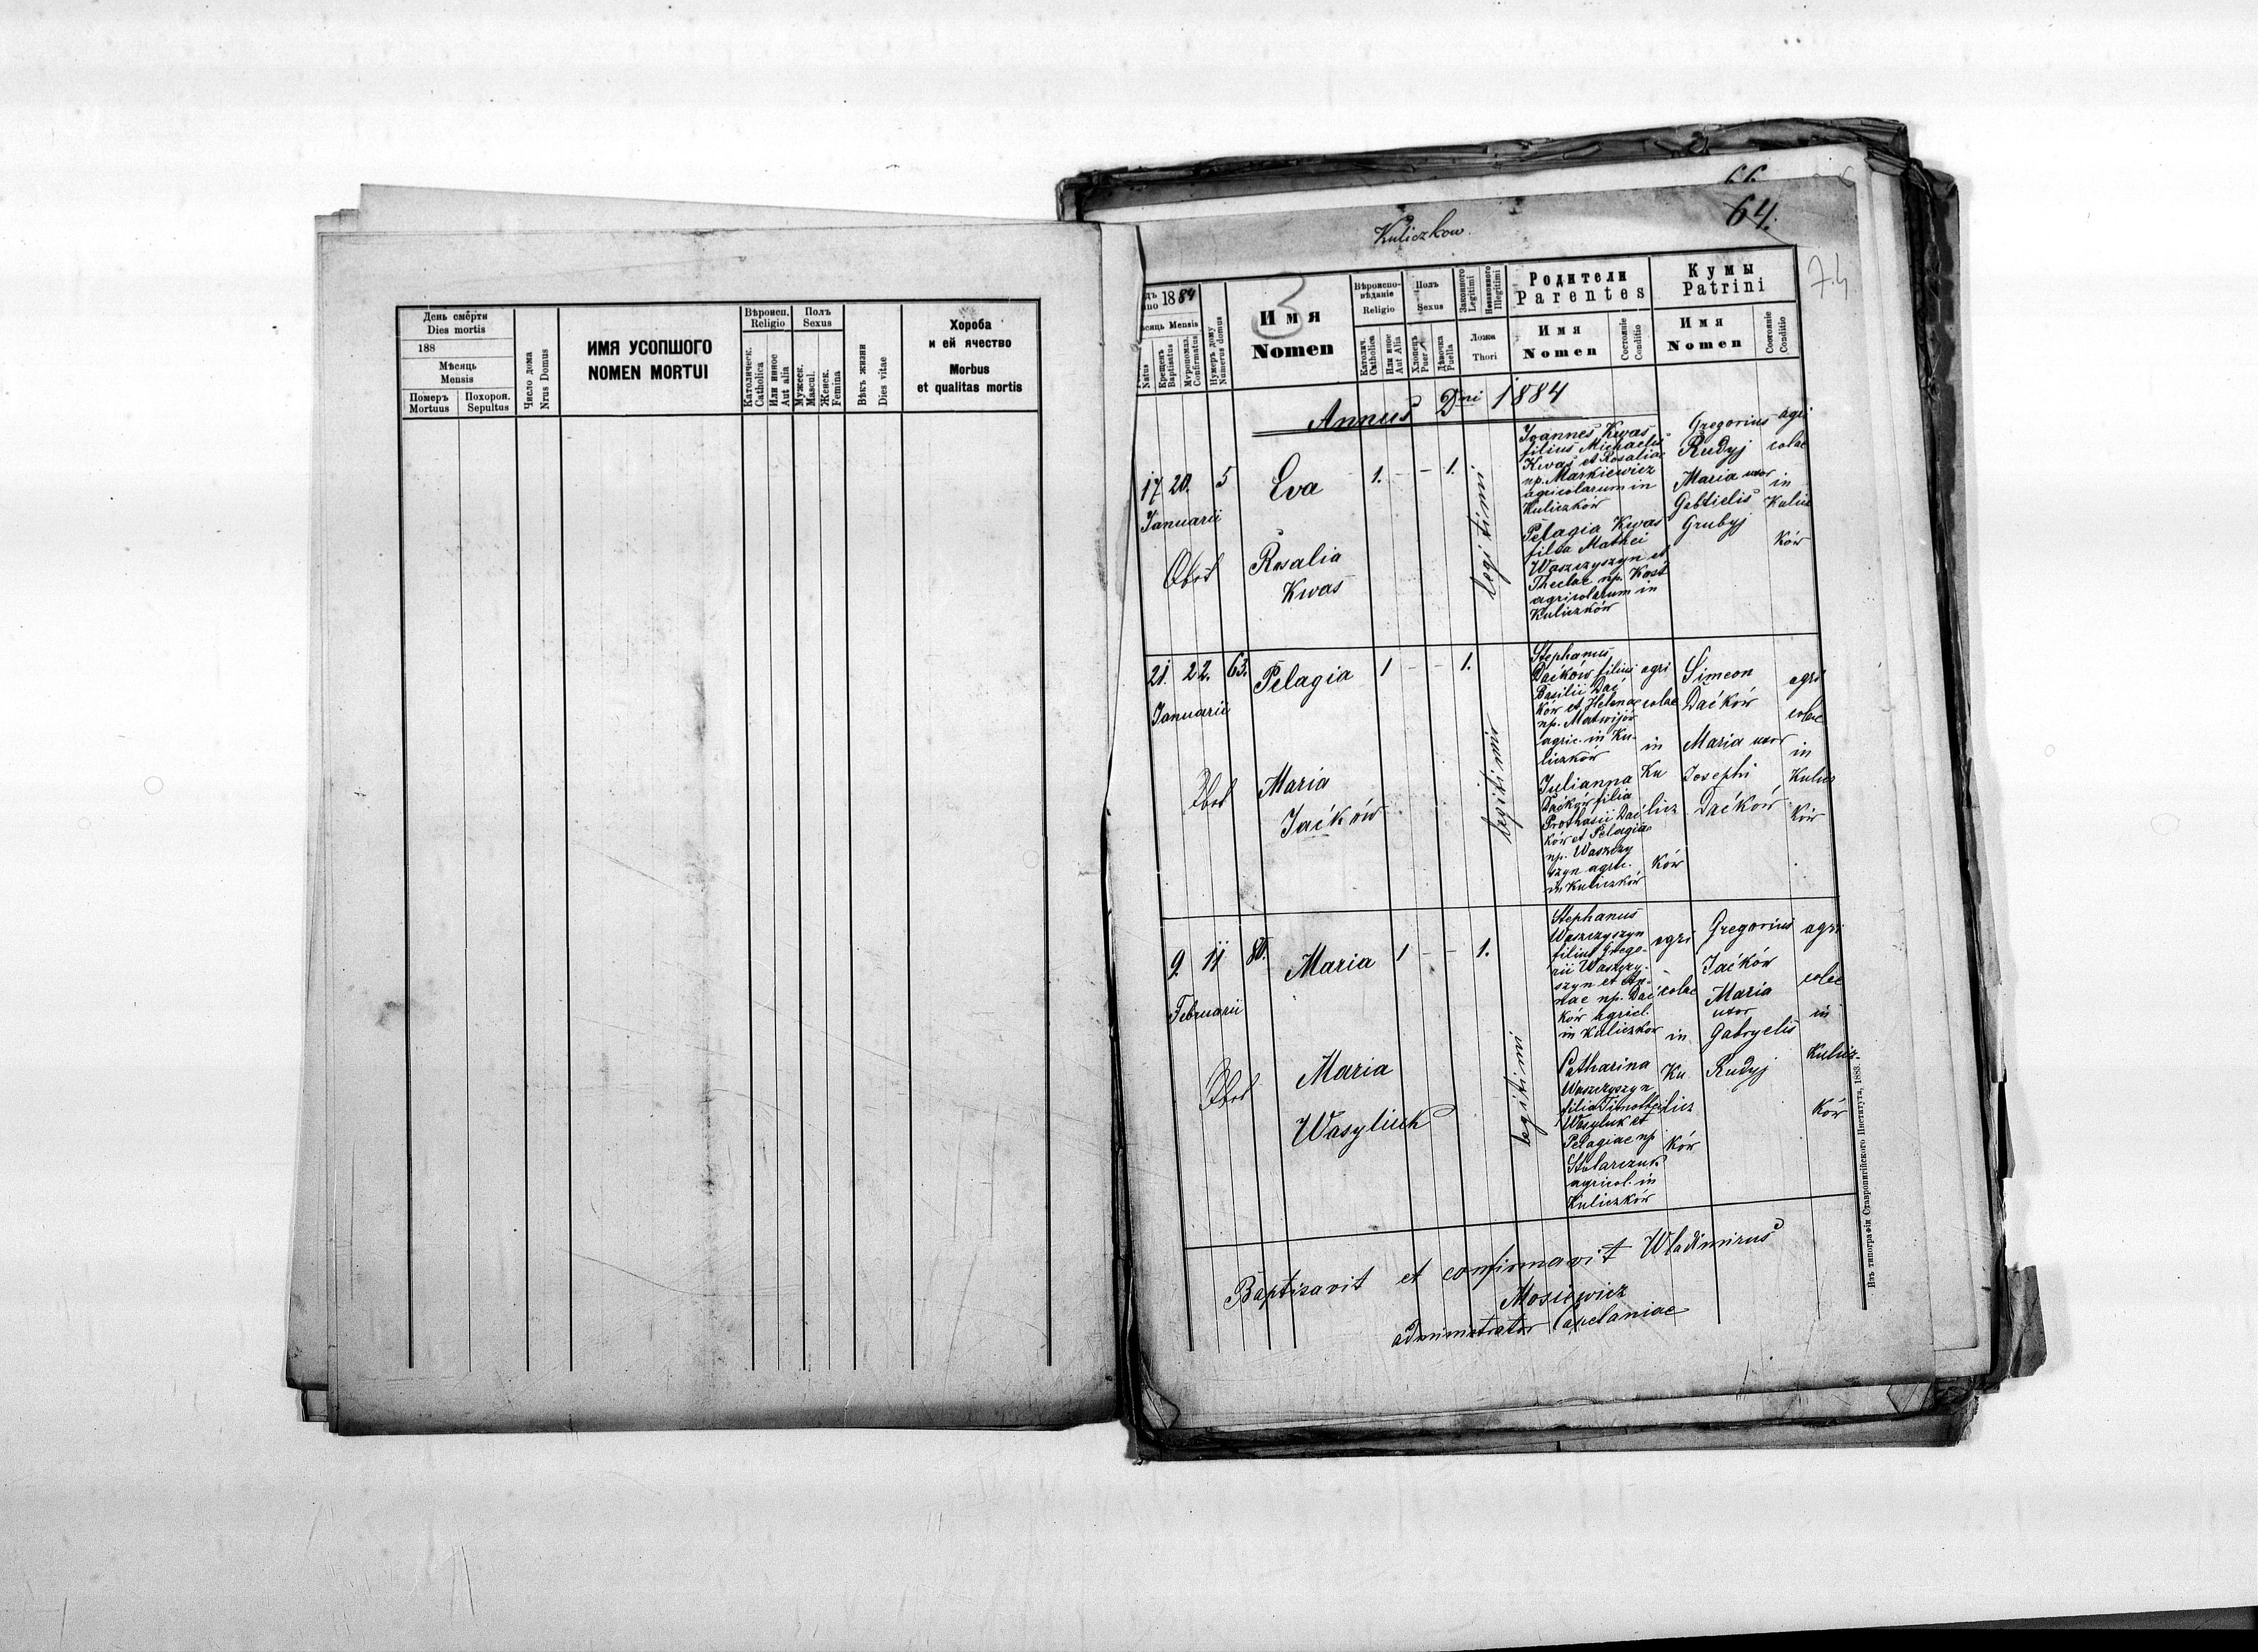 День смерти
Dies mortis
188
Мѣсяць
Mensis
Померъ
Mortuus
Похорон.
Sepultus
Число дома
Nrus Domus
ИМЯ УСОПШОГО
NOMEN MORTUI
Вѣроисп.
Religio
Католическ.
Catholica
Или инное
Aut alia
Полъ
Sexus
Мужеск.
Mascul.
Женск.
Femina
Вѣкъ жизни
Dies vitae
Хороба
и ей ячество
Morbus
et qualitas mortis
66
64.
74
Kuliczkow.
3
1884
Mensis
Natus
Крещенъ
Baptisatus
Мѵропомаз.
Confirmatus
Нумеръ дому
Numerus domus
Имя
Nomen
Вѣроиспо-
вѣданіе
Religio
Католич.
Catholica
Или иное
Aut Alia
Полъ
Sexus
Хлопець
Puer
Дѣвочка
Puella
Законного
Legitimi
Незаконного
Illegitimi
Ложа
Thori
Родители
Parentes
Имя
Nomen
Состояніе
Conditio
Кумы
Patrini
Имя
Nomen
Состояніе
Conditio
Annus Dni 1884
17 20. 5 Eva 1. - - 1.
Januarii
Obst
Rosalia
Kwas
legitimi
Joannes Kwas
filius Michaelis
Kwas et Rosaliae
np. Markiewicz
agricolarum in
Kuliczków
Pelagia Kwas
filia Mathei
Waszczyszyn et
Theclae np. Kost
agricolarum in
Kuliczków
Gregorius
Rudyj
Maria uxor
Gabrielis
Grubyj
agri
colae
in
Kulicz
ków
21. 22. 63. Pelagia 1 - - 1.
Januarii
Obst
Maria
Jaćków
legitimi
Stephanus
Daćków filius
Basilii Dać
ków et Helenae
np. Matwijów
agric. in Ku-
liczków
Julianna
Daćków filia
Prothasii Dać
ków et Pelagiae
np. Waszczy
szyn agric.
in Kuliczków
agri
colae
in
Ku
licz
ków
Simeon
Daćków
Maria uxor
Josephi
Daćków
agri
colae
in
Kulicz
ków
9. 11 80. Maria 1 - - 1.
Februarii
Obst
Maria
Wasyliuk
legitimi
Stephanus
Waszczyszyn
filius Grego-
rii Waszczy-
szyn et An-
nae np. Dać
ków agricl.
in Kuliczkow
Catharina
Waszczyszyn
filia Timothei
Wasyluk et
Pelagiae np
Stolarczuk
agricol. in
Kuliczków
agri
colae
in
Ku
licz
ków
Gregorius
Jaćków
Maria
uxor
Gabryelis
Rudyj
agri
colae
in
Kulicz-
ków
Baptisavit et confirmavit Wladimirus
Mosiewicz
administrator Capelaniae
Изъ типографіи Ставропигійского Института, 1883.